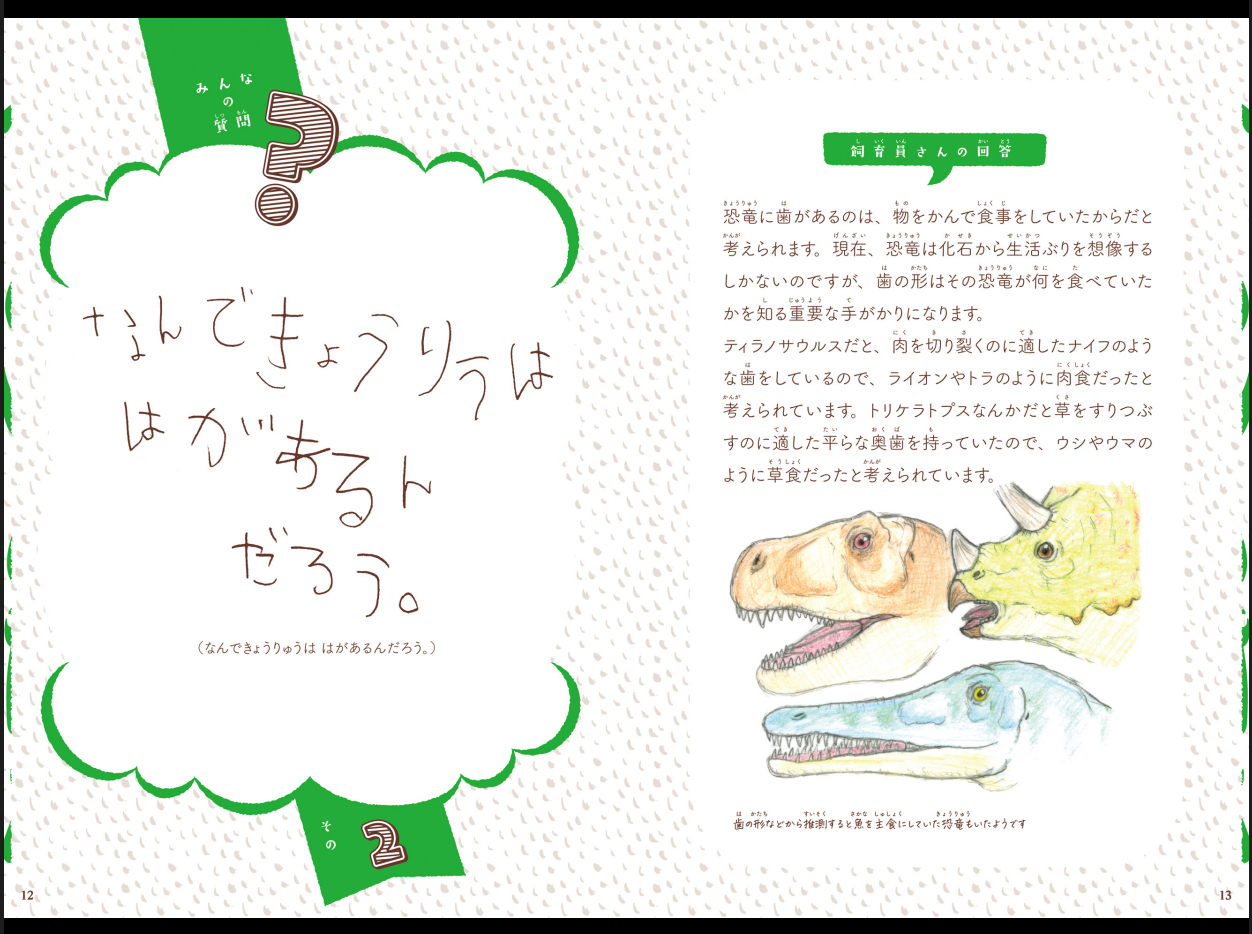 みんな
の
質問
?
なんできょうりうは
はがあるん
だろう。
（なんできょうりゅうは はがあるんだろう。）
その
2
12
飼育員さんの回答
恐竜に歯があるのは、物をかんで食事をしていたからだと
考えられます。現在、恐竜は化石から生活ぶりを想像する
しかないのですが、歯の形はその恐竜が何を食べていた
かを知る重要な手がかりになります。
ティラノサウルスだと、肉を切り裂くのに適したナイフのよう
な歯をしているので、ライオンやトラのように肉食だったと
考えられています。トリケラトプスなんかだと草をすりつぶ
すのに適した平らな奥歯を持っていたので、ウシやウマの
ように草食だったと考えられています。
歯の形などから推測すると魚を主食にしていた恐竜もいたようです
13